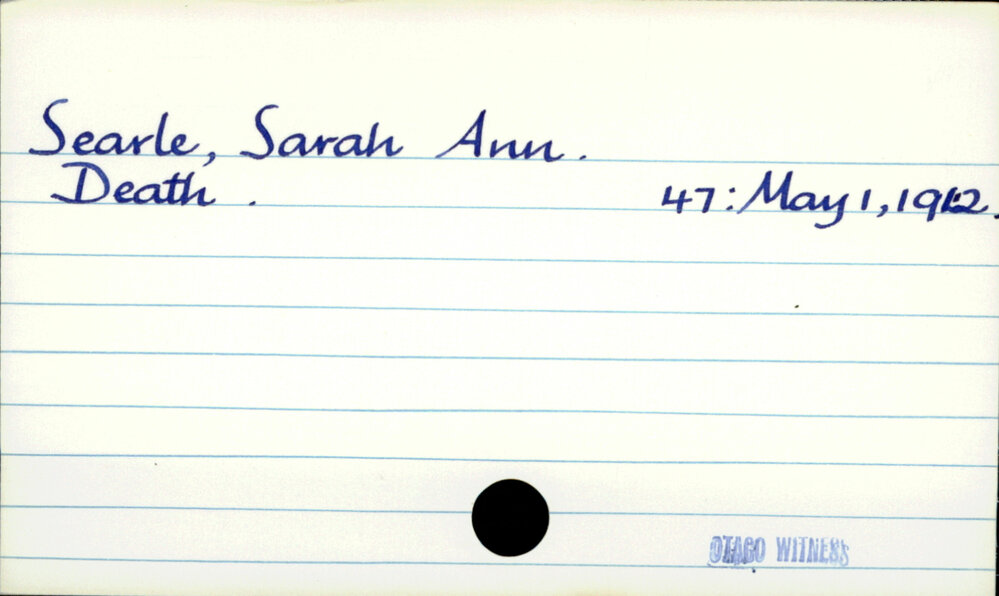 Searle, Sarah Ann.
Death. 47: May 1, 1912.
OTAGO WITNESS